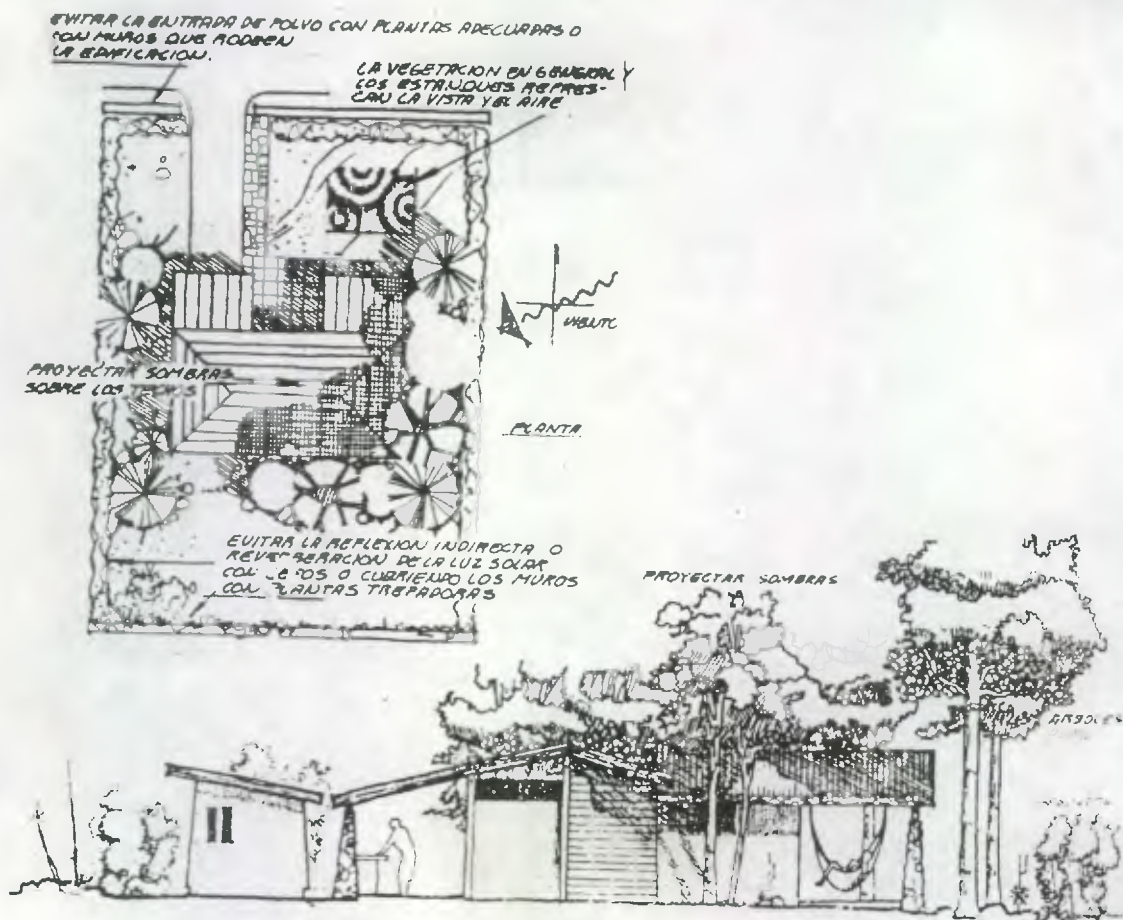 EVITAR LA ENTRADA DE POLVO CON PLANTAS ADECUADAS O
CON MUROS QUE RODEEN
LA EDIFICACION.
LA VEGETACION EN GENERAL Y
LOS ESTANQUES REFRES-
CAN LA VISTA Y EL AIRE
VIENTO
PROYECTAR SOMBRAS
SOBRE LOS
PLANTA
EVITAR LA REFLEXION INDIRECTA O
REVERBERACION DE LA LUZ SOLAR
CON O CUBRIENDO LOS MUROS
CON PLANTAS TREPADORAS
PROYECTAR SOMBRAS
ARBOLES